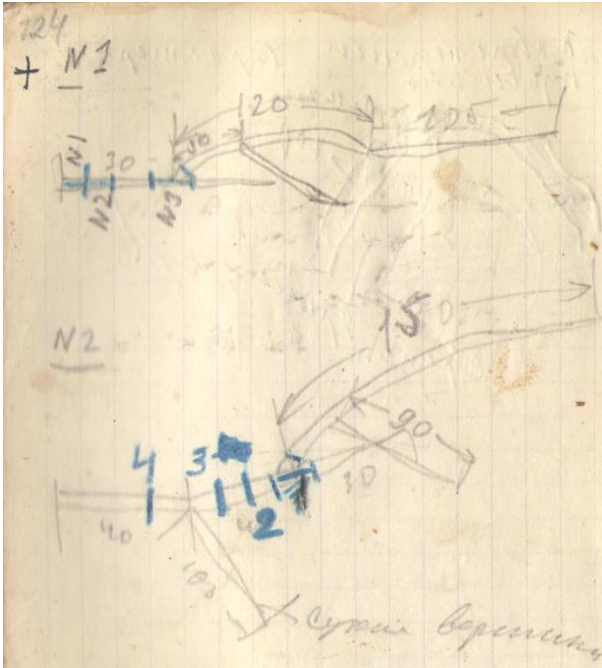 124
+ N1
120
105
N1
30
N2
N3
N2
150
90
4
3
30
2
1
40
100
Сухая вершина